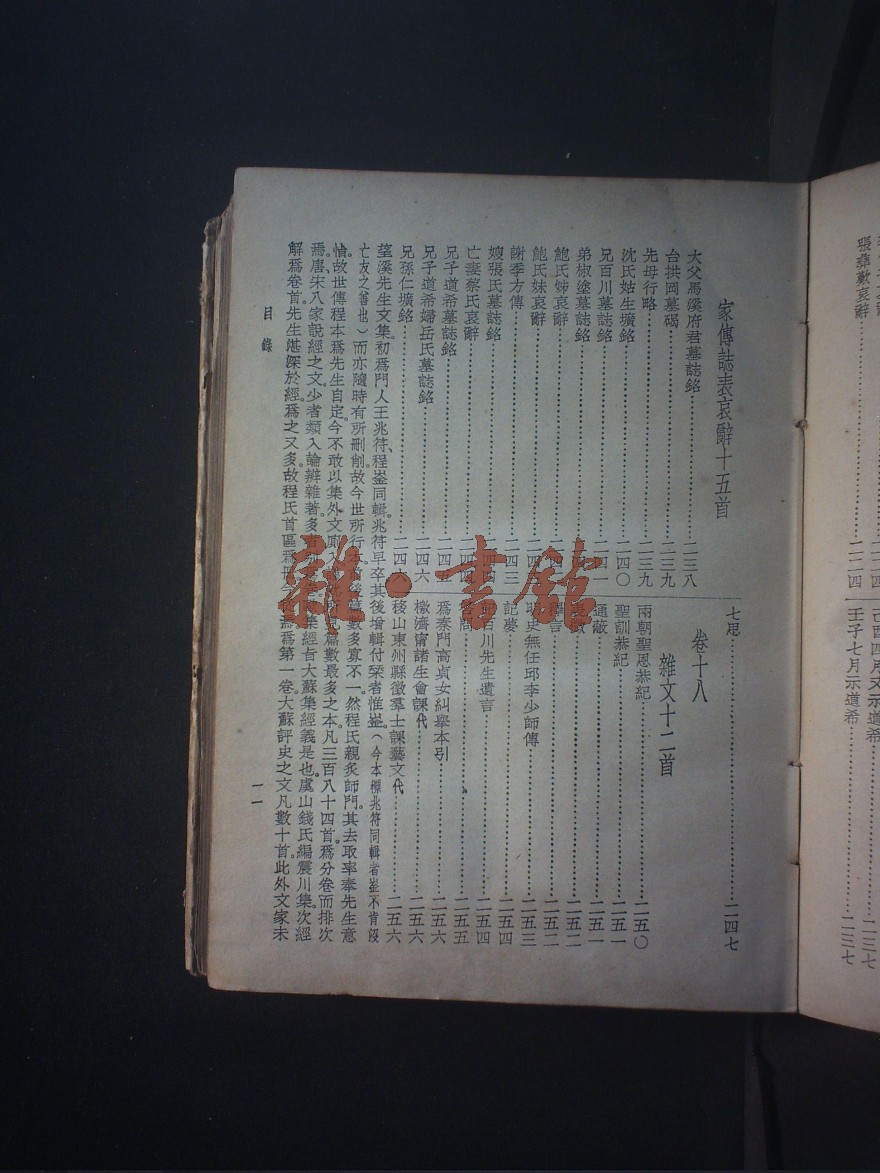 張彝歎哀辭……二二四
己酉四月又示道希……二三七
壬子七月示道希……二三七
家傳誌表哀辭十五首
大父馬溪府君墓誌銘……二三八
台拱岡墓碣……二三九
先母行略……二三九
沈氏姑生壙銘……二四〇
兄百川墓誌銘……二四一
弟椒塗墓誌銘
鮑氏姊哀辭
鮑氏妹哀辭
謝季方傳……二四三
嫂張氏墓誌銘
亡妻蔡氏哀辭
兄子道希墓誌銘……二四四
兄子道希婦岳氏墓誌銘……二四六
兄孫仁壙銘……二四六
七思……二四七
卷十八
雜文十二首
兩朝聖恩恭紀……二五〇
聖訓恭紀……二五一
通蔽……二五一
二五二
言……二五二
明史無任邱李少師傳……二五三
記夢……二五四
百川先生遺言……二五四
問……二五五
爲秦門高貞女糾舉本引……二五六
檄濟甯諸生會課代……二五六
移山東州縣徵羣士課藝文代……二五六
望溪先生文集初爲門人王兆符、程崟同輯。兆符早卒、其後增輯付栞者惟崟。（今本標兆符同輯者崟不肯沒
亡友之善也）而亦隨時有所刪削故今世所行本前後篇數多寡不一。然程氏親炙師門。其去取率奉先生意
恉。故世傳程本爲先生自定。今不敢以集外文廁入篇數最多之本。凡三百八十四首。爲分卷而排次
焉。唐、宋八家說經之文。少者類入論辯雜著。多者集經者大蘇集經義是也。虞山錢氏編震川集。次經
解爲卷首。先生湛深於經。爲之又多。故程氏首區爲爲第一卷。大蘇評史之文凡數十首。此外文家未
目錄
一一
雜·書館